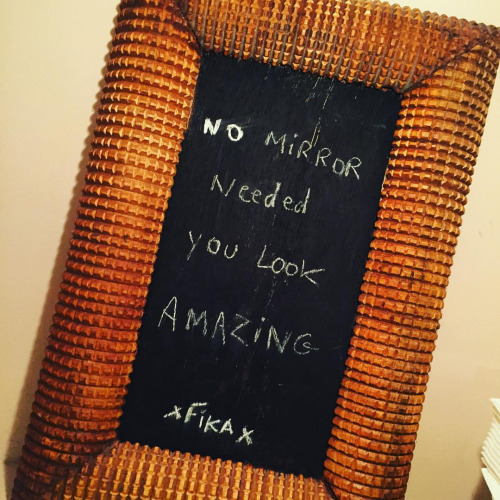 NO MiRROR
Needed
YOU LOOK
AMAZiNG
xFiKAx